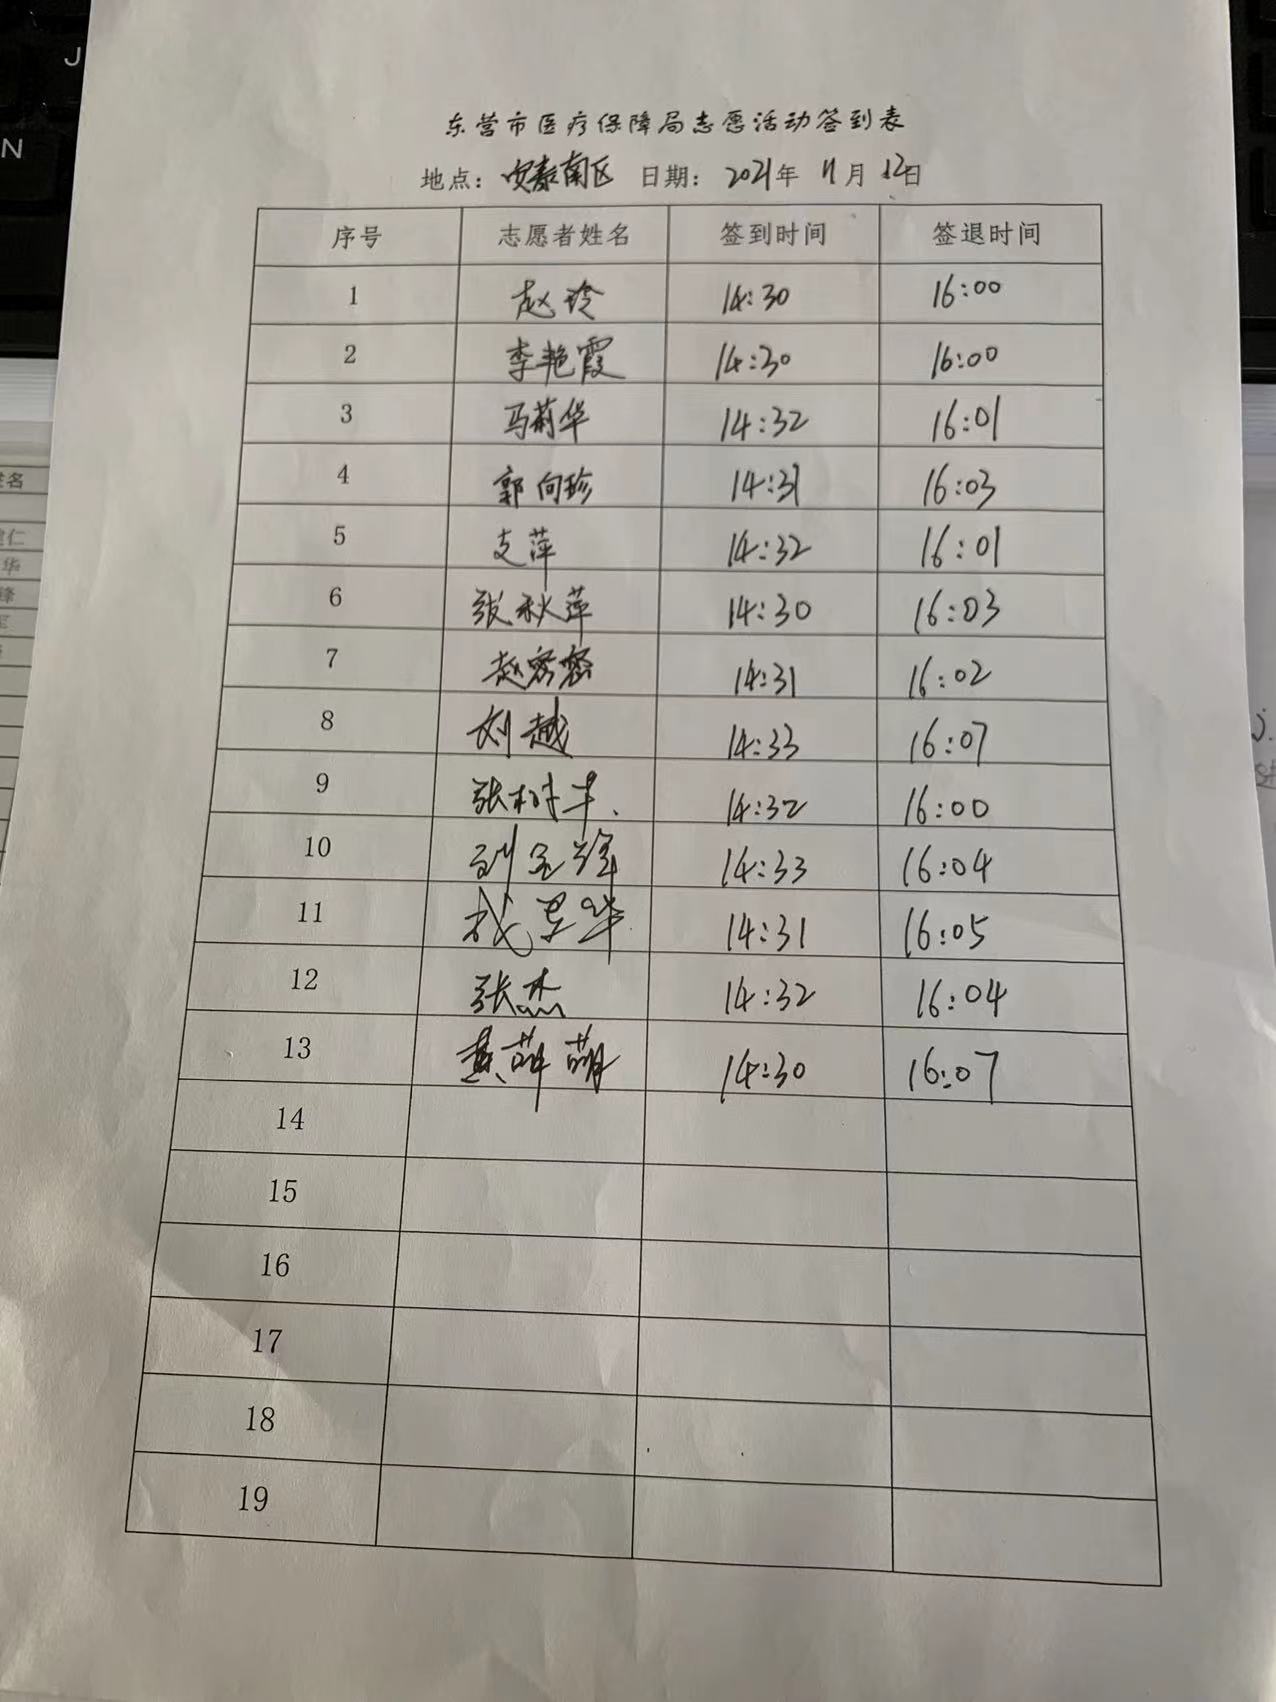 东营市医疗保障局志愿活动签到表
地点：安泰南区 日期：2021年 11月 12日
序号 志愿者姓名 签到时间 签退时间
1 赵玲 14:30 16:00
2 李艳霞 14:30 16:00
3 马莉华 14:32 16:01
4 郭向珍 14:31 16:03
5 支萍 14:32 16:01
6 张秋萍 14:30 16:03
7 赵密密 14:31 16:02
8 刘越 14:33 16:07
9 张树丰 14:32 16:00
10 14:33 16:04
11 14:31 16:05
12 张杰 14:32 16:04
13 黄萌萌 14:30 16:07
14
15
16
17
18
19